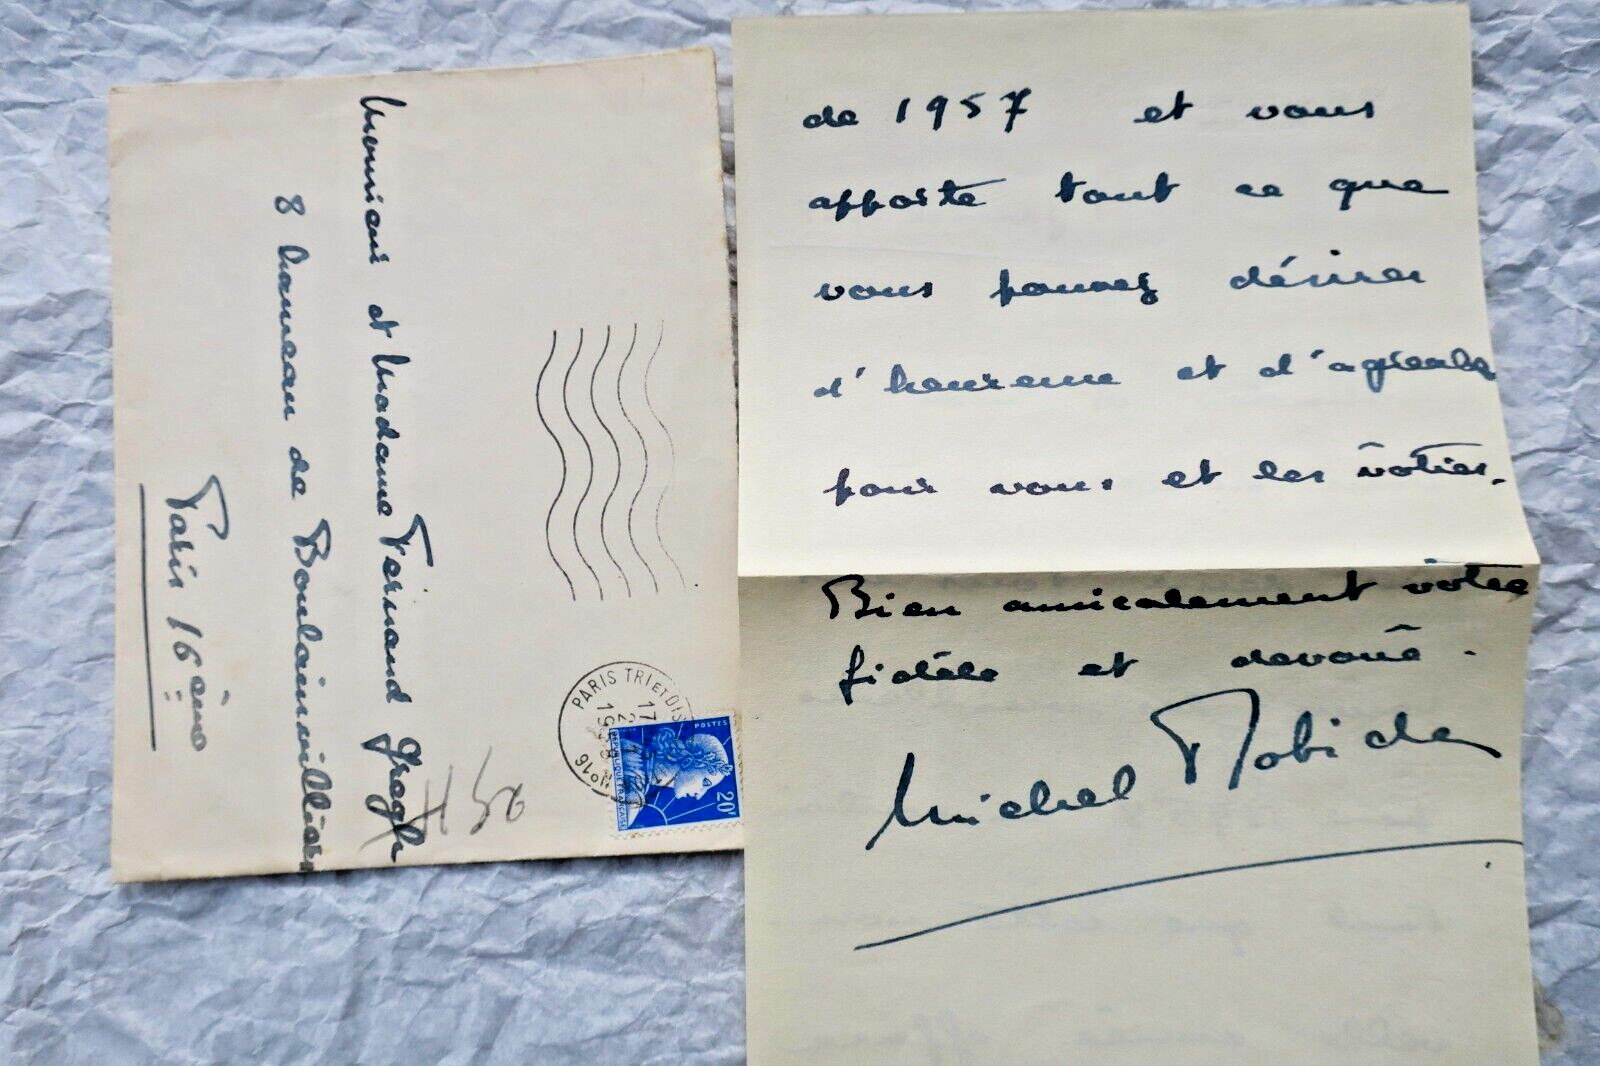 Monsieur et Madame Fernand Gregh
8 hameau de Boulainvilliers
Paris 16ème
PARIS TRI et DIS
17
POSTES
REPUBLIQUE FRANÇAISE
20F
de 1957 et vous
apporte tout ce que
vous pouvez désirer
d'heureux et d'agréable
pour vous et les vôtres.
Bien amicalement votre
fidèle et dévoué.
Michel Robida